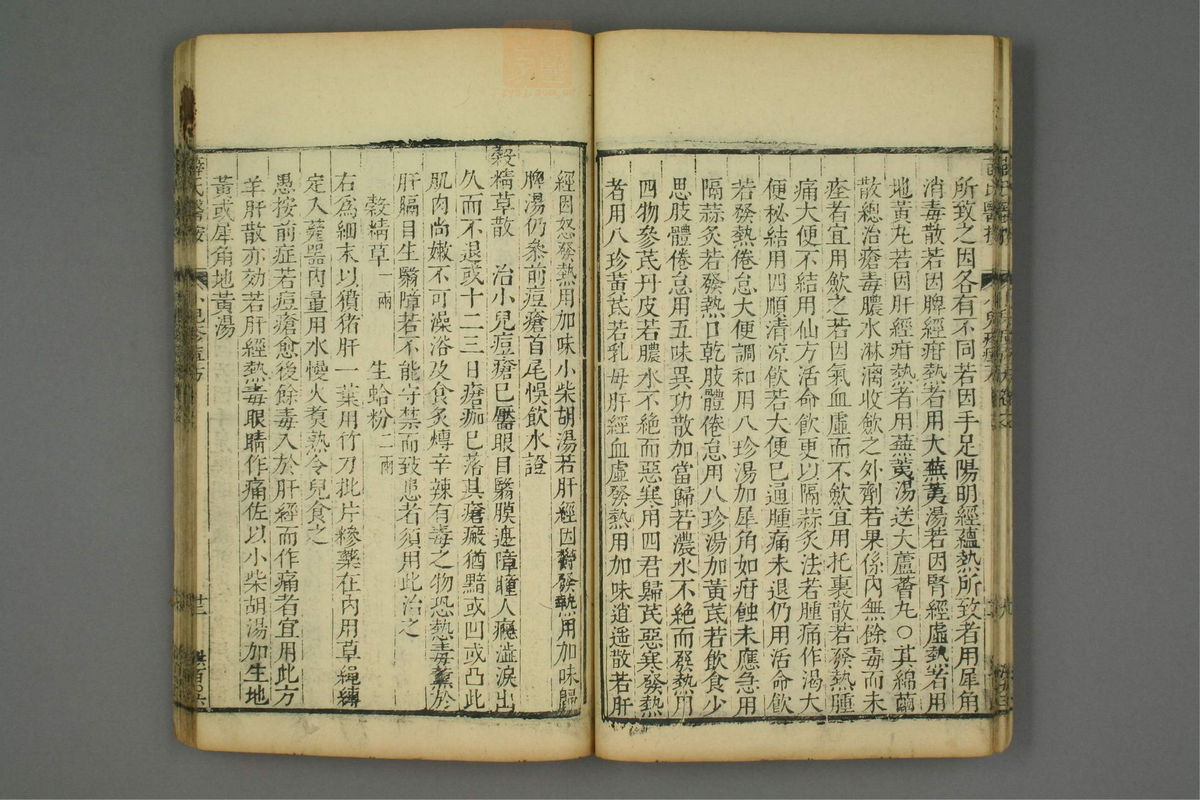 所致之因各有不同若因手足陽明經蘊熱所致者用犀角
消毒散若因脾經疳熱者用大蕪荑湯若因腎經虛熱者用
地黃丸若因肝經疳熱者用蕪荑湯送大蘆薈丸○其綿繭
散總治瘡毒膿水淋漓收斂之外劑若果係內無餘毒而未
痊者宜用斂之若因氣血虛而不斂宜用托裏散若發熱腫
痛大便不結用仙方活命飲更以隔蒜灸法若腫痛作渴大
便秘結用四順清凉飲若大便已通腫痛未退仍用活命飲
若發熱倦怠大便調和用八珍湯加犀角如疳蝕未應急用
隔蒜灸若發熱口乾肢體倦怠用八珍湯加黃芪若飲食少
思肢體倦怠用五味異功散加當歸若濃水不絕而發熱用
四物參芪丹皮若膿水不絕而惡寒用四君歸芪惡寒發熱
者用八珍黃芪若乳母肝經血虛發熱用加味逍遥散若肝
經因怒發熱用加味小柴胡湯若肝經因鬱發熱用加味歸
脾湯仍叅前痘瘡首尾悞飲水證
穀精草散 治小兒痘瘡已靨眼目翳膜遮障瞳人癮澁淚出
久而不退或十二三日瘡痂已落其瘡瘢猶黯或凹或凸此
肌肉尚嫩不可澡浴及食炙煿辛辣有毒之物恐熱毒薰於
肝膈目生翳障若不能守禁而致患者須用此治之
穀精草一兩 生蛤粉二兩
右爲細末以獖猪肝一葉用竹刀批片糝藥在內用草䋲縛
定入甆器內量用水慢火煑熟令兒食之
愚按前症若痘瘡愈後餘毒入於肝經而作痛者宜用此方
羊肝散亦効若肝經熱毒眼睛作痛佐以小柴胡湯加生地
黃或犀角地黃湯
薛氏醫按